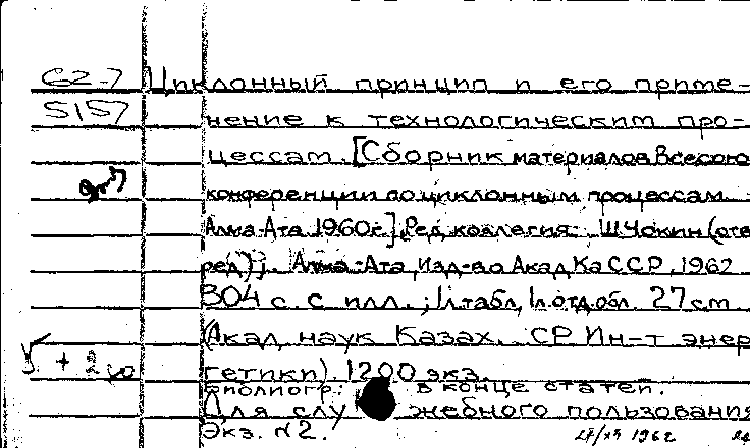 С2-7 Циклонный принцип и его приме-
5157 нение к технологическим про-
цессам. [Сборник материалов Всесоюз
конференции по циклонным процессам
Алма-Ата 1960г.] Ред. коллегия: Ш. Чокин (отв
ред.) Алма-Ата, Изд-во Акад КаССР, 1962
304 с. с илл.; 1л. табл, 1л. отд. обл. 27см
(Акад. наук Казах. СР Ин-т энер
гетики). 1200 экз.
Библиогр: в конце статей.
Для служебного пользования
Экз. №2. 1962